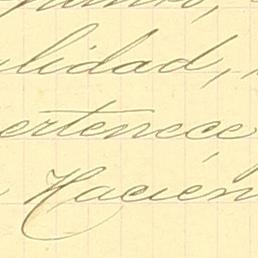 alidad,
ertenece
Hacién